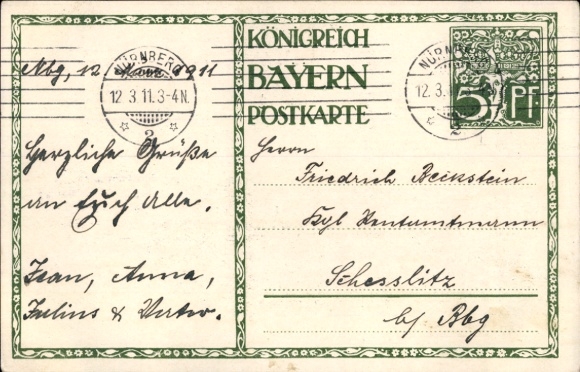 KÖNIGREICH
BAYERN
POSTKARTE
NÜRNBERG
12 3 11.3-4N.
2
NÜRNBERG
12.3.
2
5 PF
Nbg, 12 März 1911
Herzliche Grüße
an Euch Alle.
Jean, Anna,
Julius &
Herrn
Friedrich Beckstein
Kgl Rentamtmann
Schesslitz
b/ Bbg